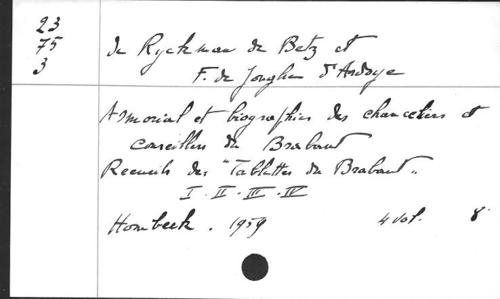 23
75
3
de Ryckman de Betz et
F. de Jonghe d'Ardoye
Armorial et biographies des chanceliers et
conseillers de Brabant
Recueils des "Tablettes du Brabant"
I. II. III. IV
Hombeek. 1959 4 vol. 8°